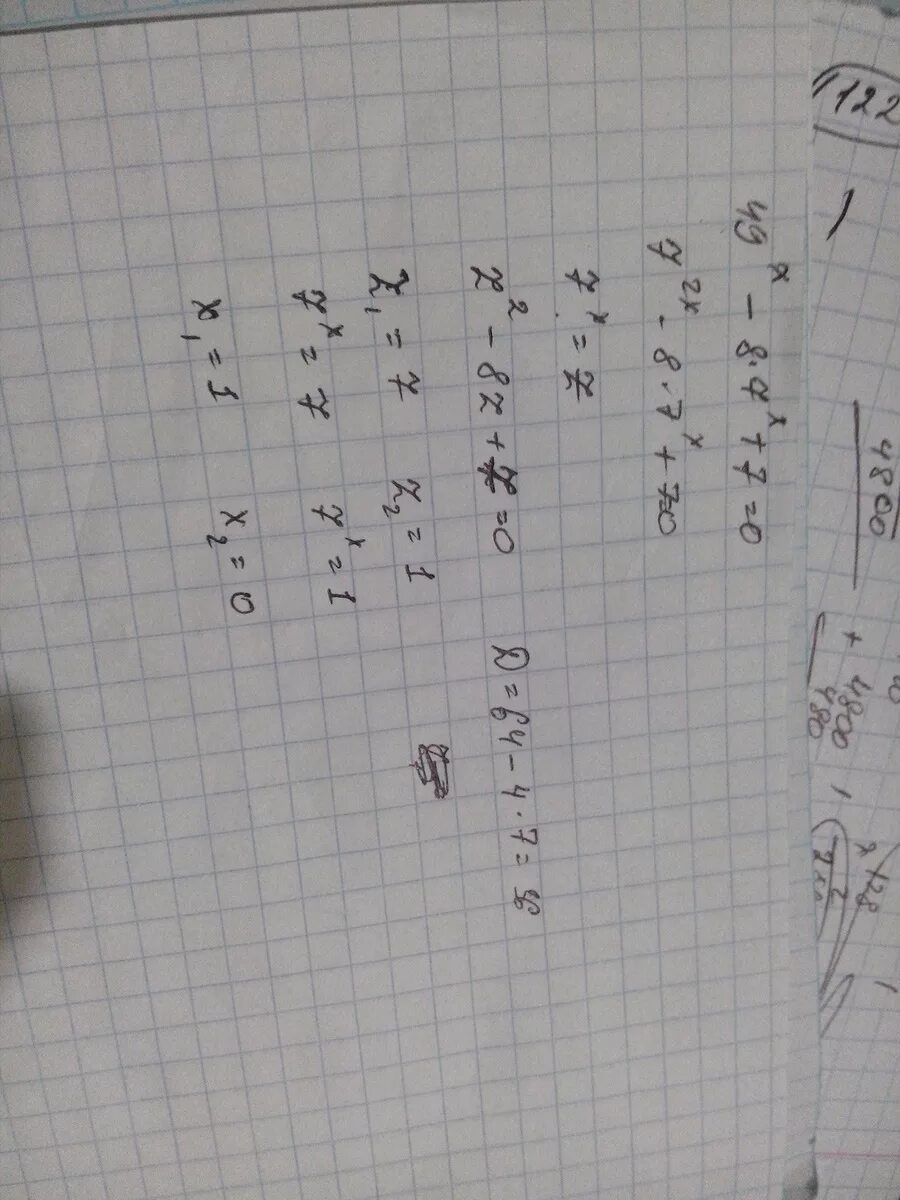 122
4800
+ 4800
480
49^x - 8·7^x + 7 = 0
7^2x - 8·7^x + 7=0
7^x = z
z^2 - 8z + 7 = 0 D = 64 - 4·7 = 36
z_1 = 7 z_2 = 1
7^x = 7 7^x = 1
x_1 = 1 x_2 = 0